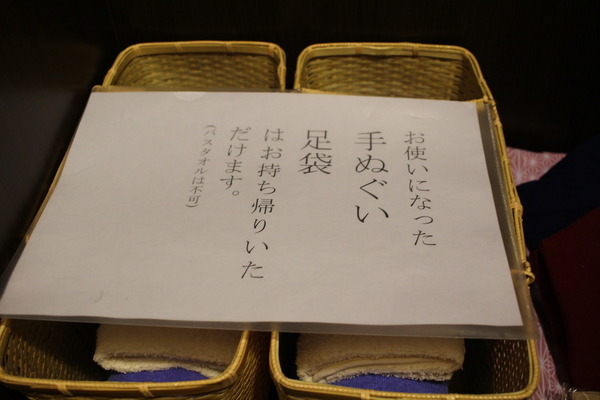 お使いになった
手ぬぐい
足袋
はお持ち帰りいた
だけます。
(バスタオルは不可)